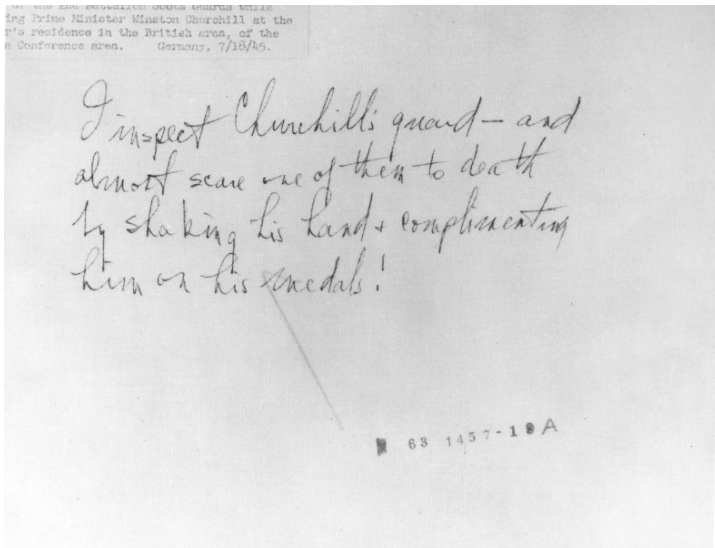 of the 2nd Battalion Scots Guards while
ing Prime Minister Winston Churchill at the
r's residence in the British area, of the
m Conference area. Germany, 7/18/45.
I inspect Churchill's guard – and
almost scare one of them to death
by shaking his hand + complimenting
him on his medals!
63 1457-19A